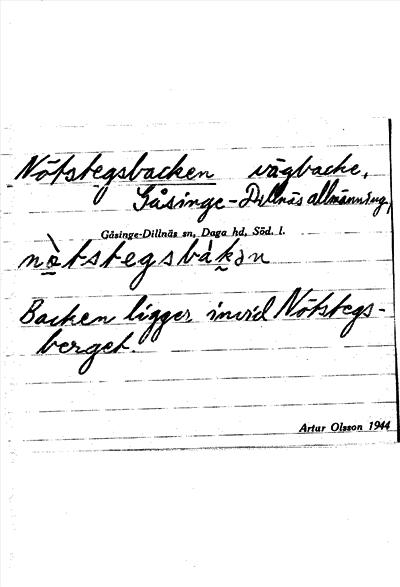 Nötstegsbacken vägbacke,
Gåsinge-Dillnäs allmänning,
Gåsinge-Dillnäs sn, Daga hd, Söd. l.
nò̱tstegsbák̬ən
Backen ligger invid Nötstegs-
berget.
Artur Olsson 1944